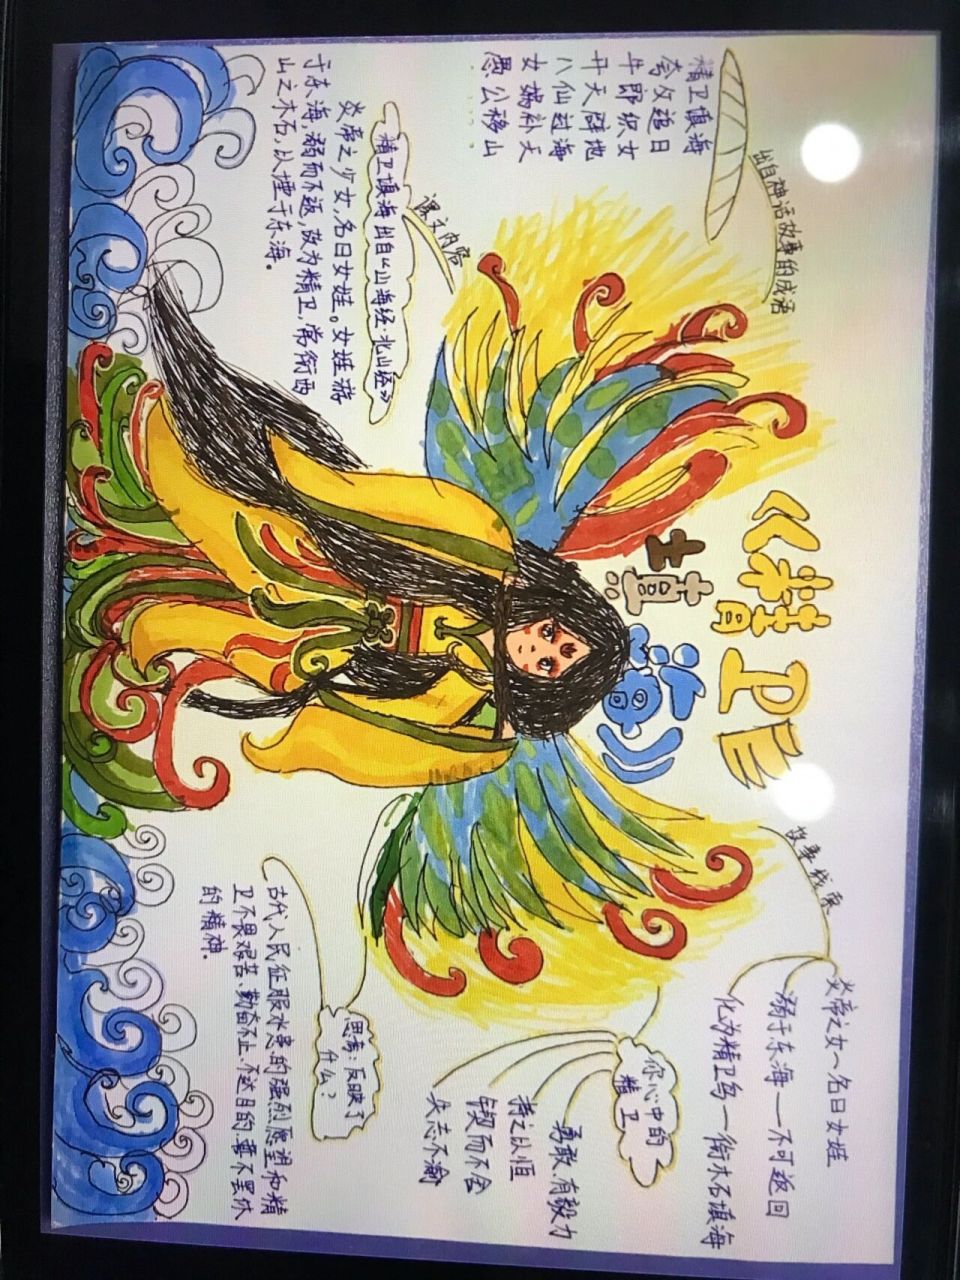 《精卫
填海》
出自神话故事的成语
精卫填海
夸父追日
牛郎织女
开天辟地
八仙过海
女娲补天
愚公移山
课文内容
精卫填海出自《山海经·北山经》
炎帝之少女,名曰女娃。女娃游
于东海,溺而不返,故为精卫,常衔西
山之木石,以堙于东海。
故事线索
炎帝之女—名曰女娃
溺于东海——不可返回
化为精卫鸟—衔木石填海
你心中的
精卫
勇敢、有毅力
持之以恒
锲而不舍
失志不渝
思考:反映了
什么?
古代人民征服水患的强烈愿望和精
卫不畏艰苦、勤奋不止、不达目的誓不罢休
的精神.